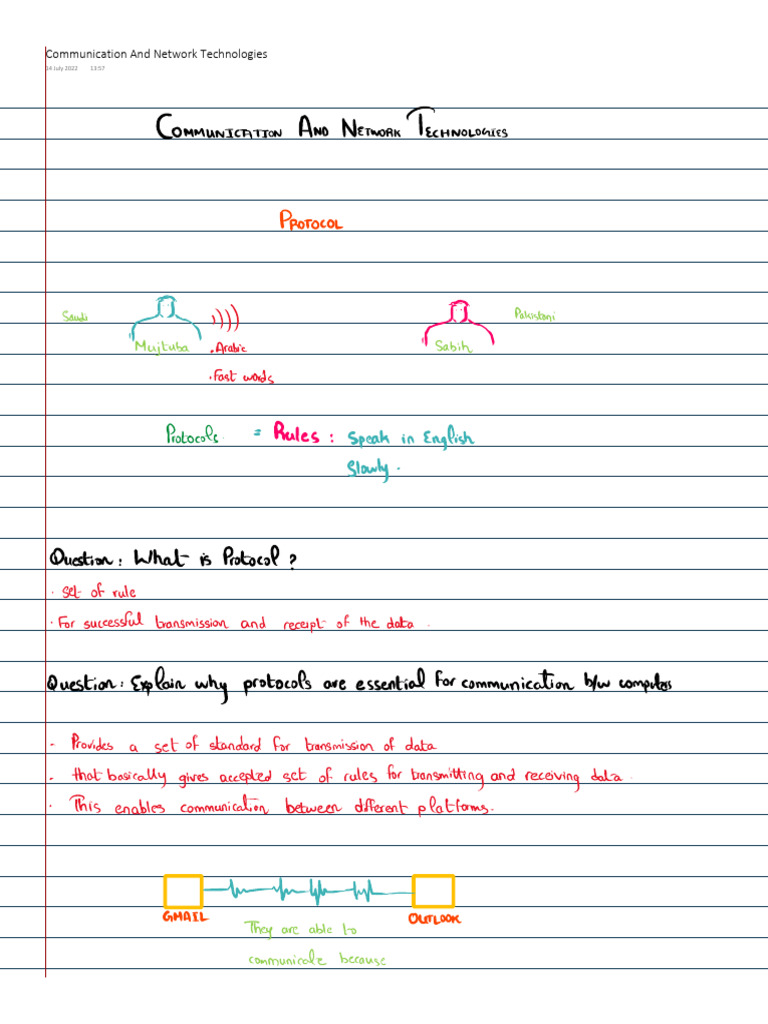 Communication And Network Technologies
14 July 2022 13:57
COMMUNICATION AND NETWORK TECHNOLOGIES
PROTOCOL
Saudi
Pakistani
Mujtuba
. Arabic
Sabih
. Fast words
Protocols = Rules : Speak in English
Slowly .
Question : What is Protocol ?
. set of rule
. For successful transmission and receipt of the data .
Question : Explain why protocols are essential for communication b/w computers
- Provides a set of standard for transmission of data
- that basically gives accepted set of rules for transmitting and receiving data .
. This enables communication between different platforms.
GMAIL
OUTLOOK
They are able to
communicate because